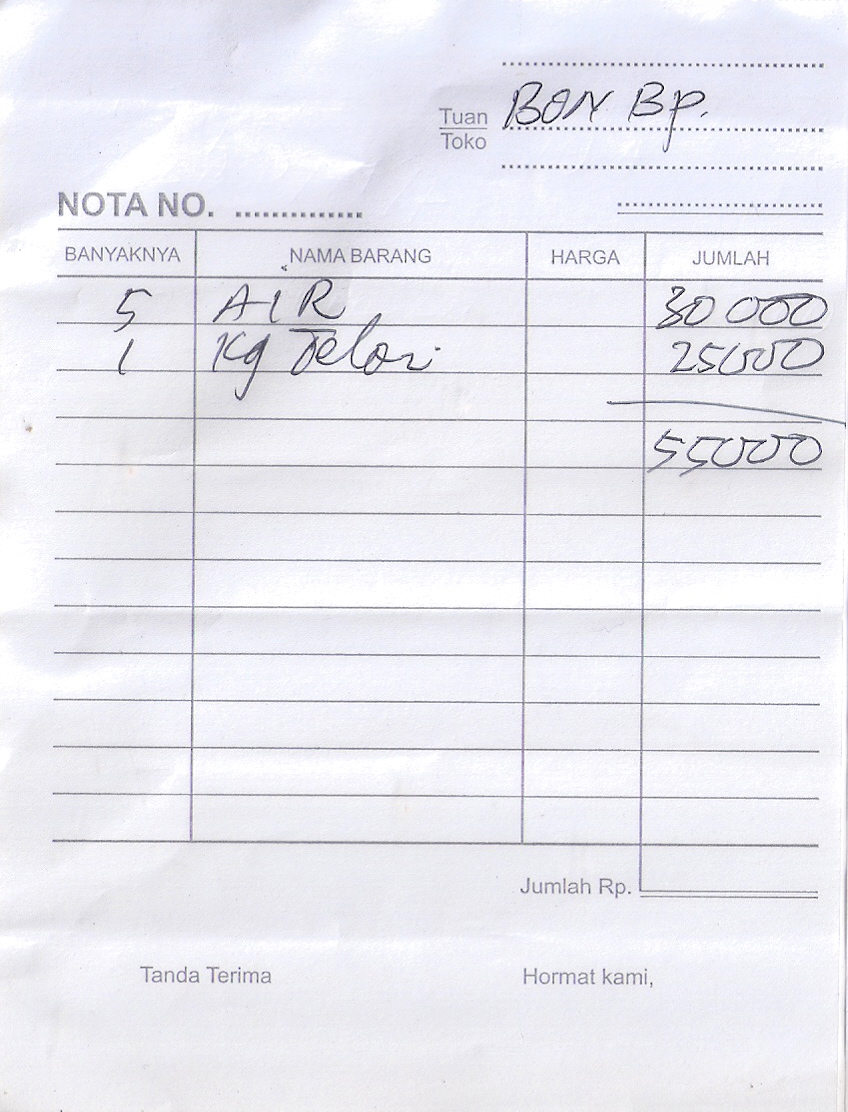 Tuan
Toko
BON Bp.
NOTA NO.
BANYAKNYA NAMA BARANG HARGA JUMLAH
5 AIR 30 000
1 Kg Telor 25000
55000
Jumlah Rp.
Tanda Terima Hormat kami,